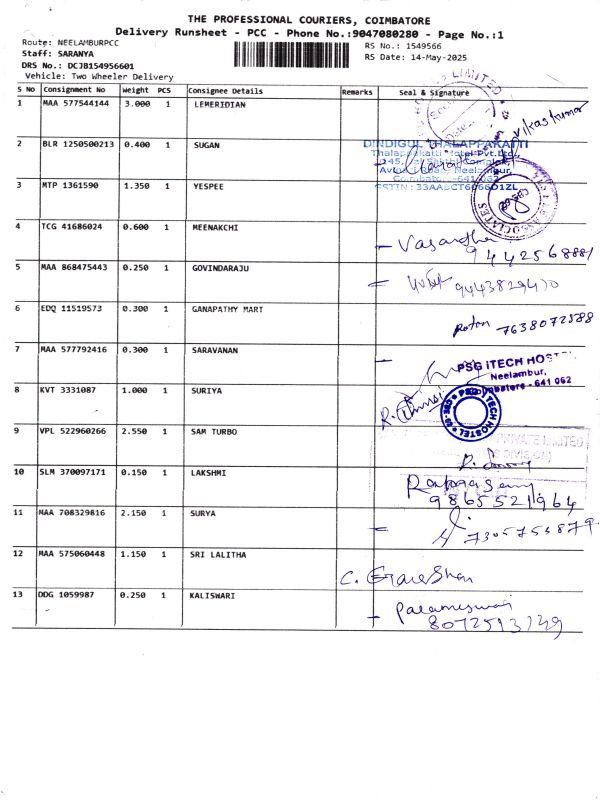 THE PROFESSIONAL COURIERS, COIMBATORE
Delivery Runsheet - PCC - Phone No.:9047080280 - Page No.:1
Route: NEELAMBURPCC
Staff: SARANYA
DRS No.: DCJB154956601
Vehicle: Two Wheeler Delivery
RS No.: 1549566
RS Date: 14-May-2025
S No Consignment No Weight PCS Consignee Details Remarks Seal & Signature
1 MAA 577544144 3.000 1 LEMERIDIAN
LIMITED
Date
Vikas kumar
2 BLR 1250500213 0.400 1 SUGAN
DINDIGUL THALAPPAKATTI
Thalappakatti Hotel Pvt.Ltd
Neelambur,
Coimbatore -641 062
GSTIN : 33AABCT6066D1ZL
3 MTP 1361590 1.350 1 YESPEE
ASSOCIATES
4 TCG 41686024 0.600 1 MEENAKCHI
Vasantha
9442568881
5 MAA 868475443 0.250 1 GOVINDARAJU
9443829470
6 EDQ 11519573 0.300 1 GANAPATHY MART
Ratan 7638072588
7 MAA 577792416 0.300 1 SARAVANAN
PSG iTECH HOSTEL
Neelambur,
Coimbatore - 641 062
8 KVT 3331087 1.000 1 SURIYA
PSG iTECH HOSTEL
9 VPL 522960266 2.550 1 SAM TURBO
PRIVATE LIMITED
DIVISION)
10 SLM 370097171 0.150 1 LAKSHMI
9865521964
11 MAA 708329816 2.150 1 SURYA
7305753879
12 MAA 575060448 1.150 1 SRI LALITHA
13 DDG 1059987 0.250 1 KALISWARI
Parameswari
8072513149